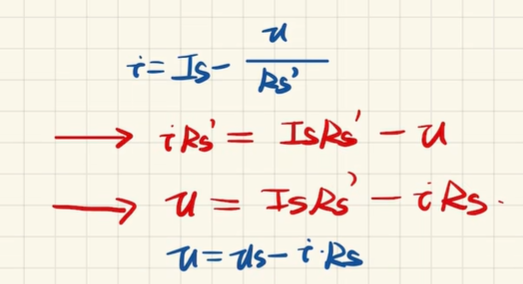 i = Is - u/Rs'
→ iRs' = IsRs' - u
→ u = IsRs' - iRs.
u = us - i·Rs